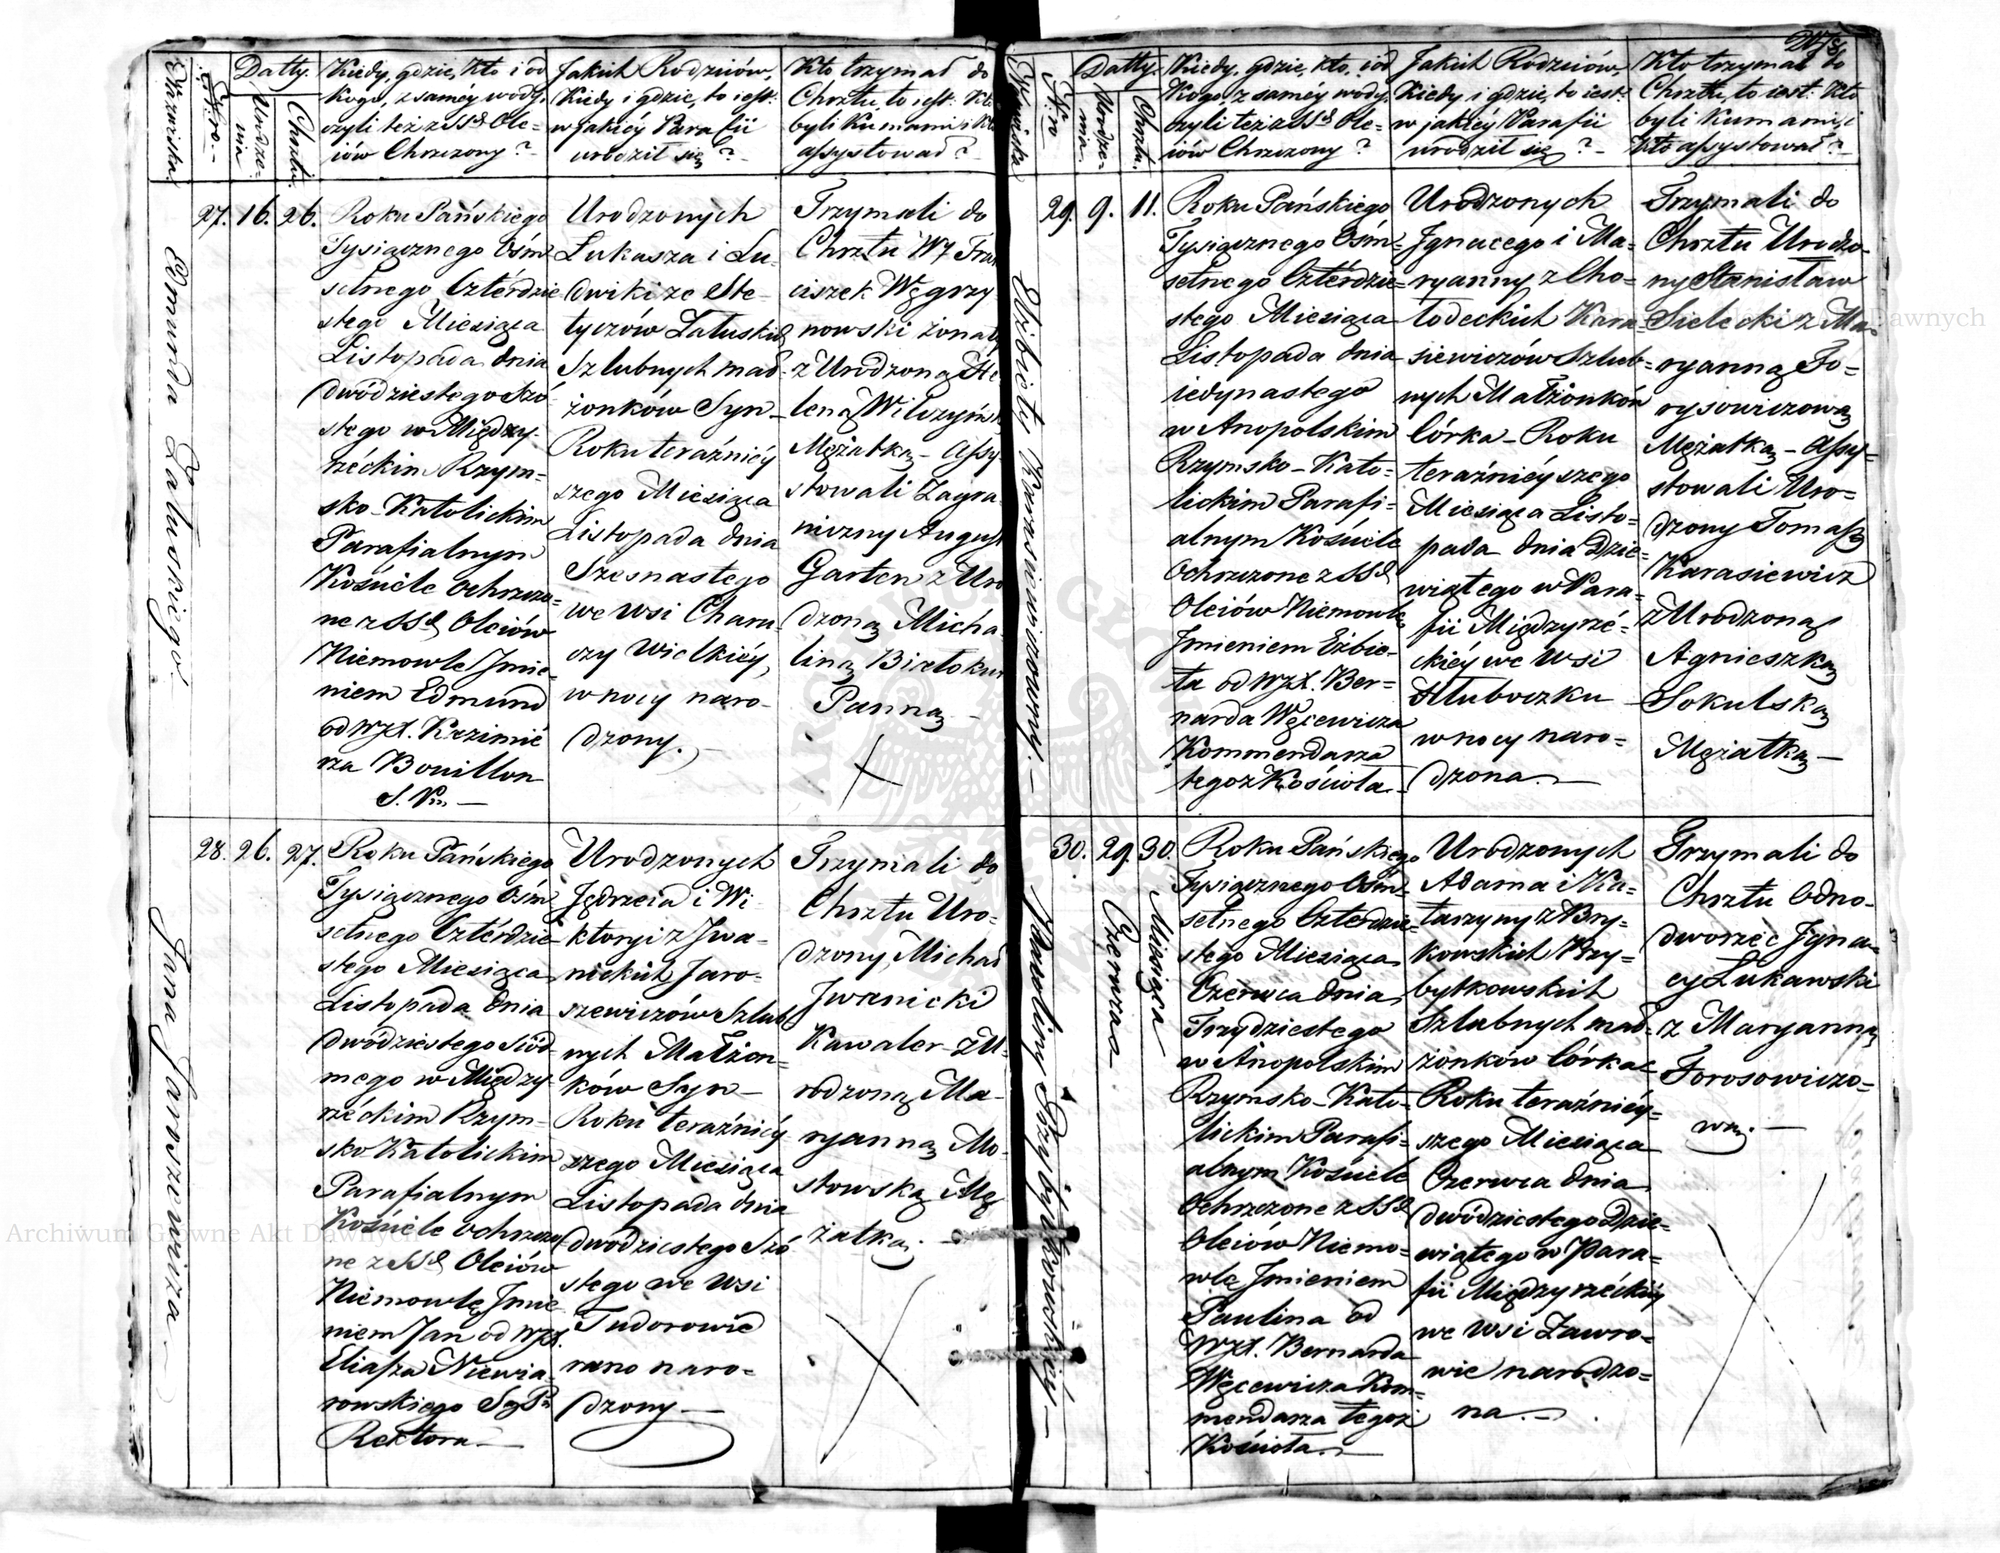 Chrzcziska
Nro
Datty.
Urodze-
nia
Chrztu.
Kiedy, gdzie, Kto i od
Kogo, z saméy wody,
czyli też z SSch Ole-
iów Chrzczony?
Jakich Rodziców,
Kiedy i gdzie, to iest:
w jakiéy Parafii
urodził się?
Kto trzymał do
Chrztu, to iest: Kto
byli Kumami i Kto
assystował?
Edmunda Załuskiego.
27. 16. 26.
Roku Pańskiego
Tysiącznego Ośm
setnego Czterdzie
stego Miesiąca
Listopada dnia
dwódziestego szó
stego w Między-
rzéckim Rzym-
sko-Katolickim
Parafialnym
Kościele ochrzczo-
ne z SSch Oleiów
Niemowle Jmie-
niem Edmund
od WJX. Kazimié
rza Bouillon
S. P.
Urodzonych
Łukasza i Lu-
dwiki ze Ste-
tyczów Załuskich
Szlubnych mał-
żonków Syn-
Roku teraźniéy
szego Miesiąca
Listopada dnia
Szesnastego
we wsi Charu-
czy Wielkiéy,
w nocy naro-
dzony.
Trzymali do
Chrztu WJ Fran
ciszek Węgrzy-
nowski żonaty
z Urodzoną He-
leną Wilczyńsk
Mężatką - Assy-
stowali Zagra-
niczny August
Garten z Uro
dzoną Micha-
liną Białokur
Panną
Jana Jaroszewicza
28. 26. 27.
Roku Pańskiego
Tysiącznego Ośm
setnego Czterdzie-
stego Miesiąca
Listopada dnia
dwódziestego siód-
mego w Między-
rzéckim Rzym-
sko Katolickim
Parafialnym
Kościele ochrzczo-
ne z SSch Oleiów
Niemowlę Jmie-
niem Jan od WJX.
Eliasza Niewia-
rowskiego
Rektora
Urodzonych
Jędrzeia i Wi-
ktoryi z Jwa-
nickich Jaro-
szewiczów Szlub
nych Małżon-
ków Syn-
Roku teraźniéy
szego Miesiąca
Listopada dnia
dwódziestego Szó
stego we wsi
Tudorowie
rano naro-
dzony
Trzymali do
Chrztu Uro-
dzony Michał
Jwanicki
Kawaler z U-
rodzoną Ma-
ryanną Mo-
stowską Mę
żatką.
Nro
Datty.
Urodze-
nia.
Chrztu.
Kiedy, gdzie, Kto, i od
Kogo, z saméy wody,
czyli też z SSch Ole-
iów Chrzczony?
Jakich Rodziców,
Kiedy i gdzie, to iest:
w jakiéy Parafii
urodził się?
Kto trzymał do
Chrztu, to iest: Kto
byli Kumami, i
Kto assystował?
Elżbiety Karasiewiczowny.
29. 9. 11.
Roku Pańskiego
Tysiącznego Ośm-
setnego Czterdzie-
stego Miesiąca
Listopada dnia
iedynastego
w Anopolskim
Rzymsko-Kato-
lickim Parafi-
alnym Kościele
ochrzczone z SSch
Oleiów Niemowle
Jmieniem Elżbie-
ta od WJX. Ber-
narda Węcewicza
Kommendarza
tegoż Kościoła.
Urodzonych
Jgnacego i Ma-
ryanny z Cho-
łodeckich Kara-
siewiczów Szlub-
nych Małżonków
Córka - Roku
teraźniéyszego
Miesiąca Listo-
pada dnia Dzie-
wiątego w Para-
fii Międzyrzé-
ckiéy we Wsi
Hłuboczku
w nocy naro-
dzona.
Trzymali do
Chrztu Urodzo-
ny Stanisław
Sielecki z Ma-
ryanną To-
rysowiczową
Mężatką - Assy-
stowali Uro-
dzony Tomasz
Karasiewicz
z Urodzoną
Agnieszką
Sokulską
Mężatką
Pauliny Przybytkowskiéy
30. 29. 30.
Miesiąca
Czerwca
Roku Pańskiego
Tysiącznego Ośm-
setnego Czterdzie-
stego Miesiąca
Czerwca dnia
Trzydziestego
w Anopolskim
Rzymsko-Kato-
lickim Parafi-
alnym Kościele
ochrzczone z SSch
Oleiów Niemo-
wlę Jmieniem
Paulina od
WJX. Bernarda
Węcewicza Kom-
mendarza tegoż
Kościoła.
Urodzonych
Adama i Ka-
tarzyny z Bry-
kowskich Przy-
bytkowskich
Szlubnych mał-
żonków Córka
Roku teraźniéy-
szego Miesiąca
Czerwca dnia
dwódziestego Dzie-
wiątego w Para-
fii Międzyrzéckiéy
we Wsi Zawro-
wie narodzo-
na.
Trzymali do
Chrztu Odno-
dworzec Jgna-
cy Łukawski
z Maryanną
Torosowiczo-
wą.
Archiwum Główne Akt Dawnych
Archiwum Główne Akt Dawnych